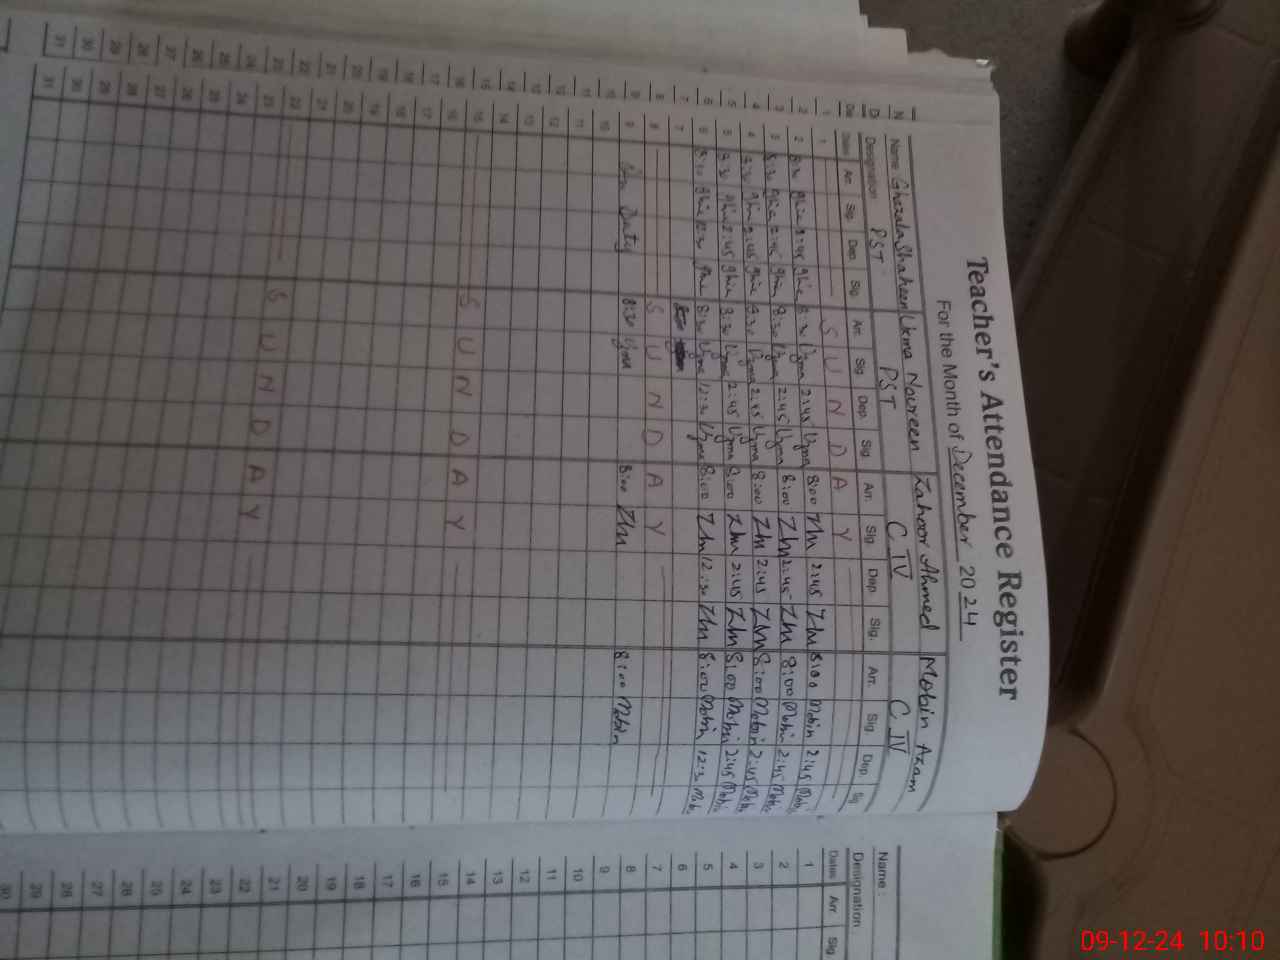 Teacher's Attendance Register
For the Month of December 2024
Name Ghazala Shaheen Uzma Noureen Zahoor Ahmed Mobin Azam
Designation PST PST C IV C IV
Dates Arr. Sig. Dep. Sig. Arr. Sig. Dep. Sig. Arr. Sig. Dep. Sig. Arr. Sig. Dep. Sig
1 S U N D A Y
2 8:30 Ghza 2:45 Ghza 8:30 Uzma 2:45 Uzma 8:00 Zhr 2:45 Zhr 8:00 Mobin 2:45 Mobin
3 8:30 Ghza 2:45 Ghza 8:30 Uzma 2:45 Uzma 8:00 Zhr 2:45 Zhr 8:00 Mobin 2:45 Mobin
4 8:30 Ghza 2:45 Ghza 8:30 Uzma 2:45 Uzma 8:00 Zhr 2:45 Zhr 8:00 Mobin 2:45 Mobin
5 8:30 Ghza 2:45 Ghza 8:30 Uzma 2:45 Uzma 8:00 Zhr 2:45 Zhr 8:00 Mobin 2:45 Mobin
6 8:30 Ghza 12:30 Ghza 8:30 Uzma 12:30 Uzma 8:00 Zhr 12:30 Zhr 8:00 Mobin 12:30 Mobin
7
8 S U N D A Y
9 Duty 8:30 Uzma 8:00 Zhr 8:00 Mobin
10
11
12
13
14
15 S U N D A Y
16
17
18
19
20
21
22 S U N D A Y
23
24
25
26
27
28
29
30
31
Name :
Designation
Dates Arr. Sig
1
2
3
4
5
6
7
8
9
10
11
12
13
14
15
16
17
18
19
20
21
22
23
24
25
26
27
28
29
30
09-12-24 10:10